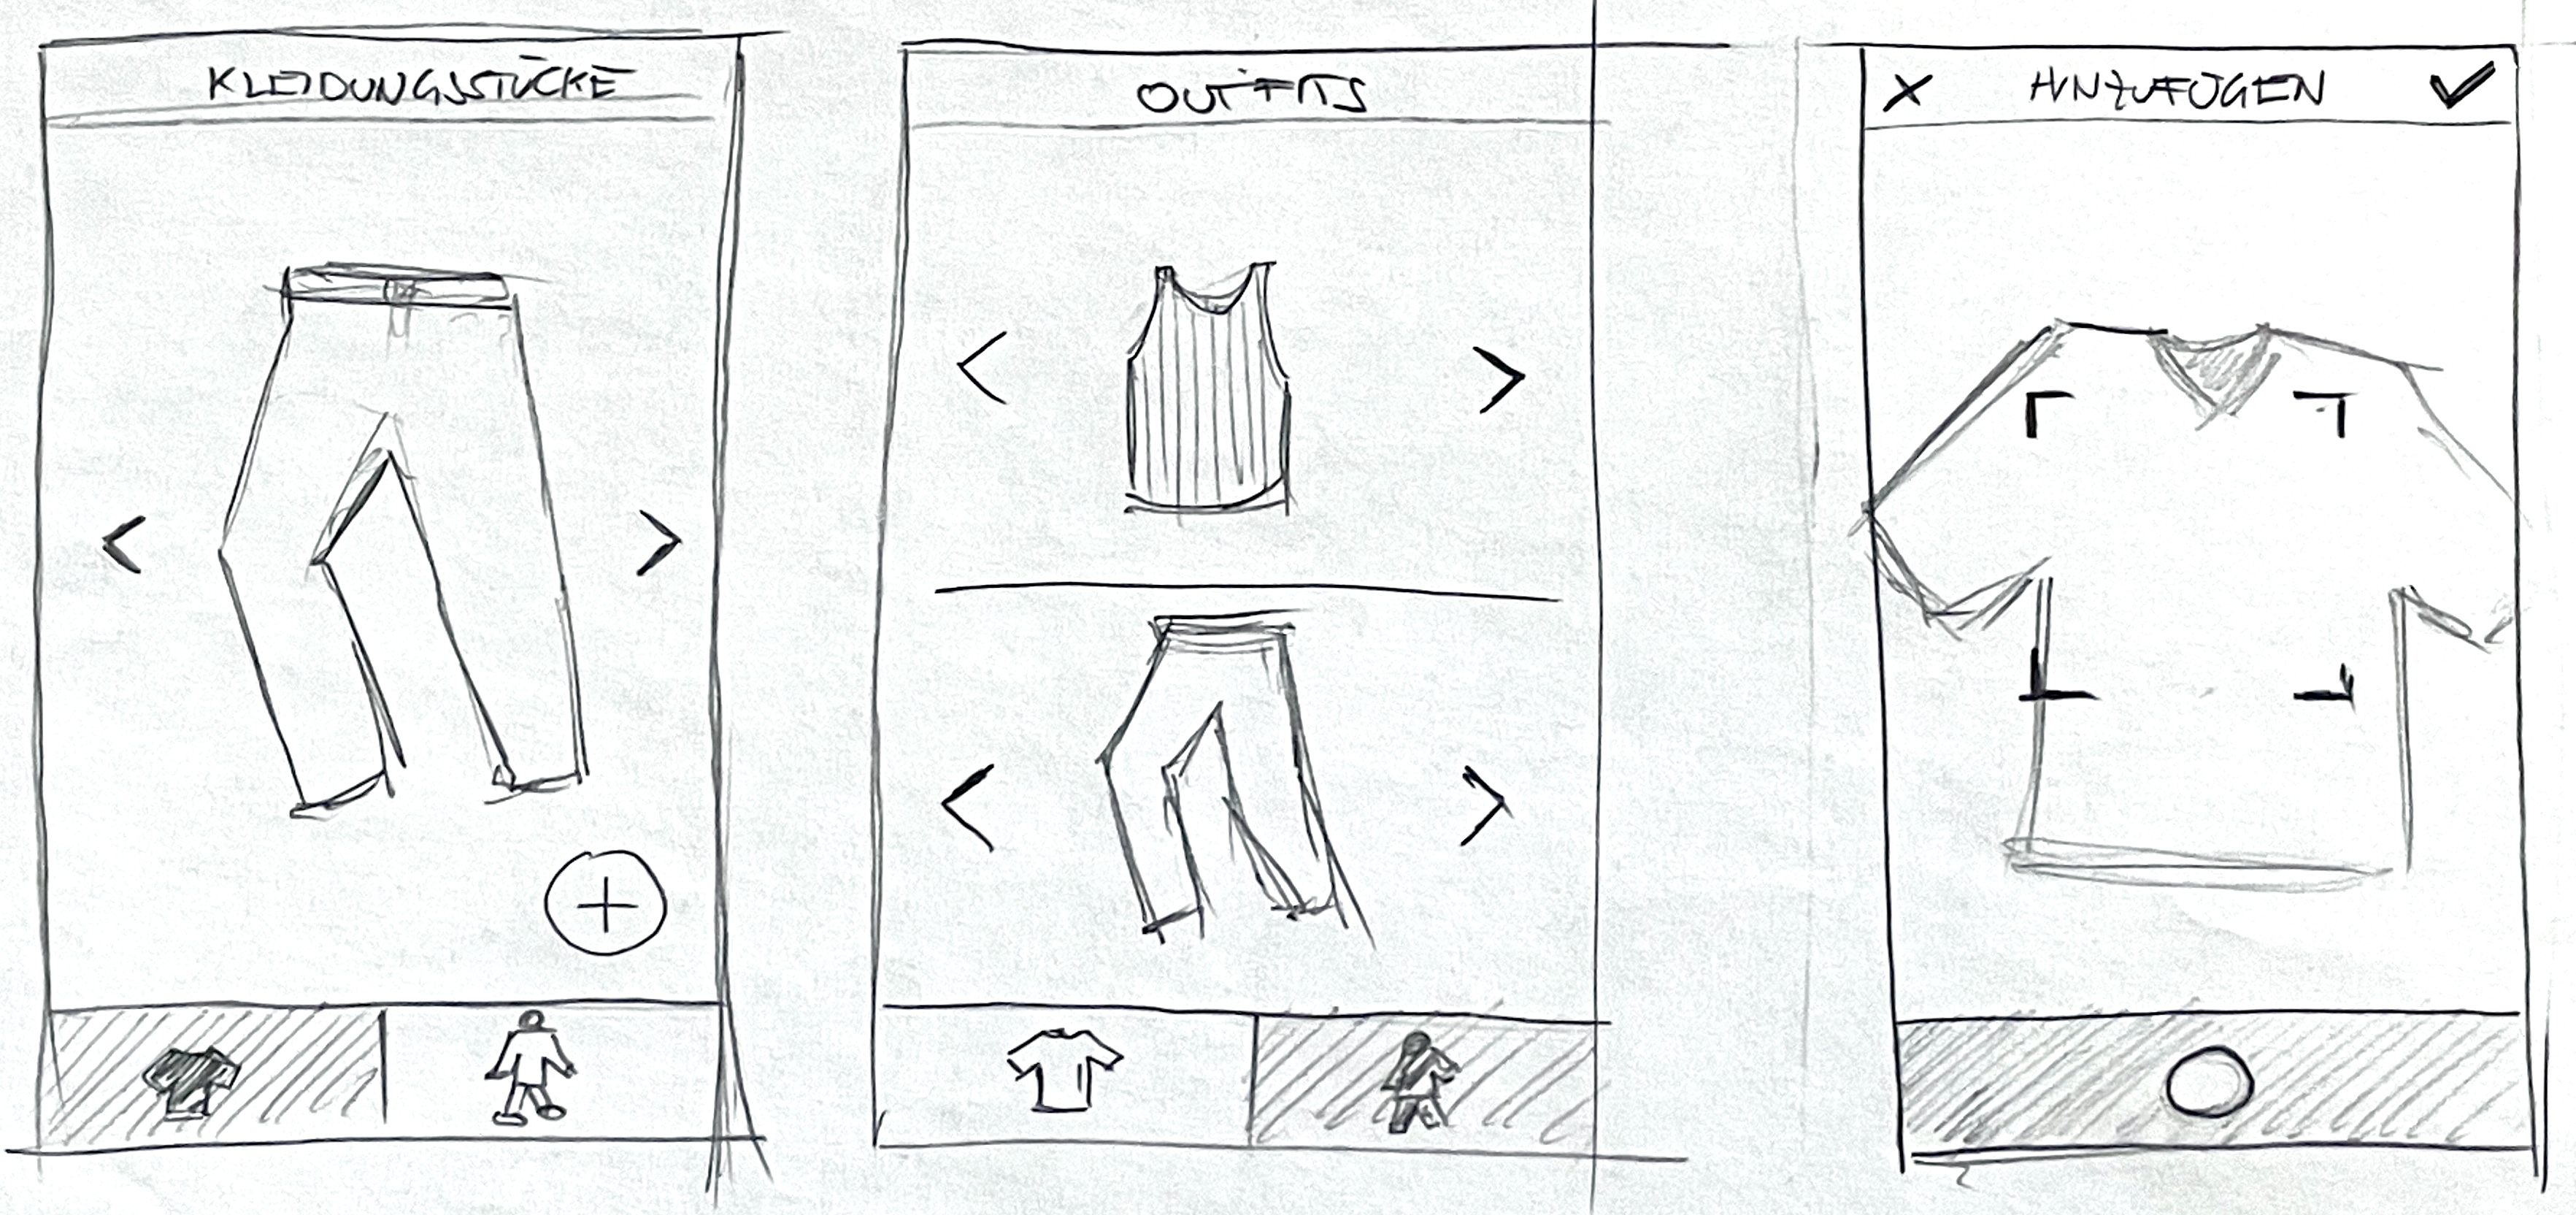 KLEIDUNGSSTÜCKE
OUTFITS
HINZUFÜGEN